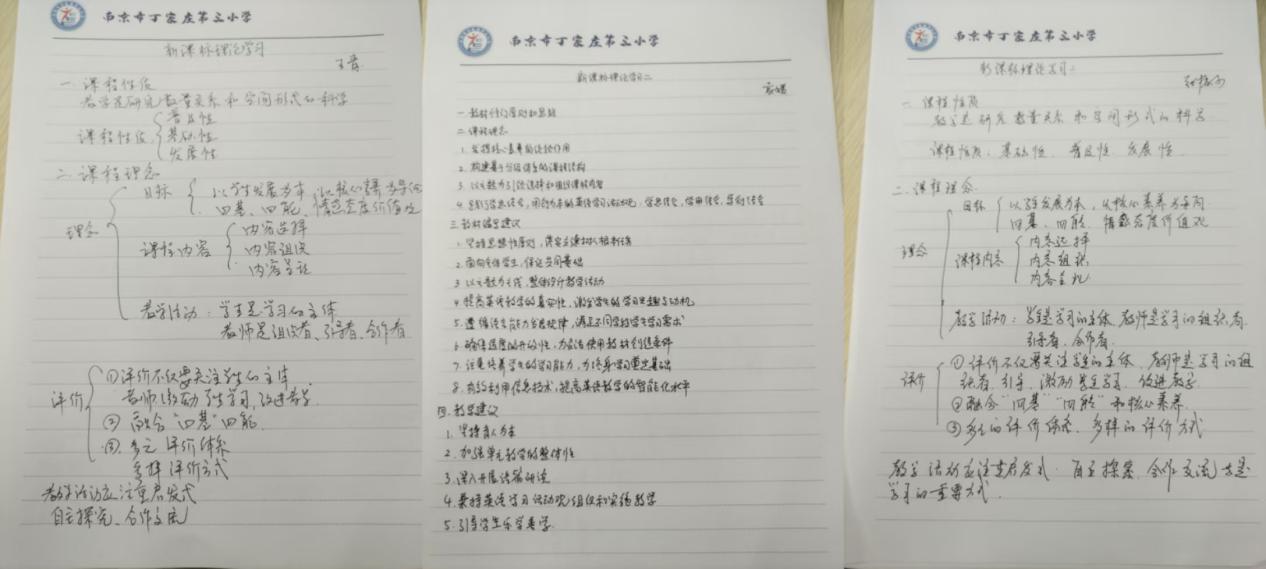 南京市丁家庄第三小学
新课标理论学习
王
一. 课程性质
数学是研究数量关系和空间形式的科学
课程性质
普及性
基础性
发展性
二. 课程理念
理念
目标
以学生发展为本 以核心素养为导向
四基、四能、情感态度价值观
课程内容
内容选择
内容组织
内容呈现
教学活动：学生是学习的主体
教师是组织者、引导者、合作者
评价
① 评价不仅要关注学生的主体
老师激励学生学习，改进教学
② 融合“四基”四能
③. 多元 评价体系
多样 评价方式
教学活动应注重启发式
自主探究、合作交流
南京市丁家庄第三小学
新课标理论学习二
一. 教材
二. 课程理念
1. 发挥核心素养的统领作用
2. 构建基于分级体系的课程结构
3. 以主题为引领选择和组织课程内容
4. 践行学思结合，用创为本的英语学习活动观：学思结合，学用结合，学创结合
三. 教材编写建议
1. 坚持思想性原则，落实立德树人根本任务
2. 面向全体学生，保证共同基础
3. 以主题为主线，整体设计教学活动
4. 提高英语教学的真实性，激发学生的学习兴趣与动机
5. 遵循语言能力发展规律，满足不同学校学生学习需求
6. 确保适度的开放性，为灵活使用教材创造条件
7. 注重培养学生的学习能力，为终身学习奠定基础
8. 有效利用信息技术，提高英语教学的智能化水平
四. 教学建议
1. 坚持育人为本
2. 加强单元教学的整体性
3. 深入开展语篇研读
4. 秉持英语学习活动观组织和实施教学
5. 引导学生乐学善学
南京市丁家庄第三小学
新课标理论学习二
一. 课程性质
数学是研究数量关系和空间形式的科学
课程性质、基础性、普及性、发展性
二. 课程理念
理念
目标
以学生发展为本，以核心素养为导向
四基、四能、情感态度价值观
课程内容
内容选择
内容组织
内容呈现
教学活动：学生是学习的主体、教师是学习的组织者
引导者、合作者
评价
① 评价不仅要关注学生的主体，教师是学习的组
织者、引导，激励学生学习、改进教学
② 融合“四基”“四能”和核心素养
③ 多元的评价体系、多样的评价方式
教学活动应注重启发式、自主探索、合作交流也是
学习的重要方式.